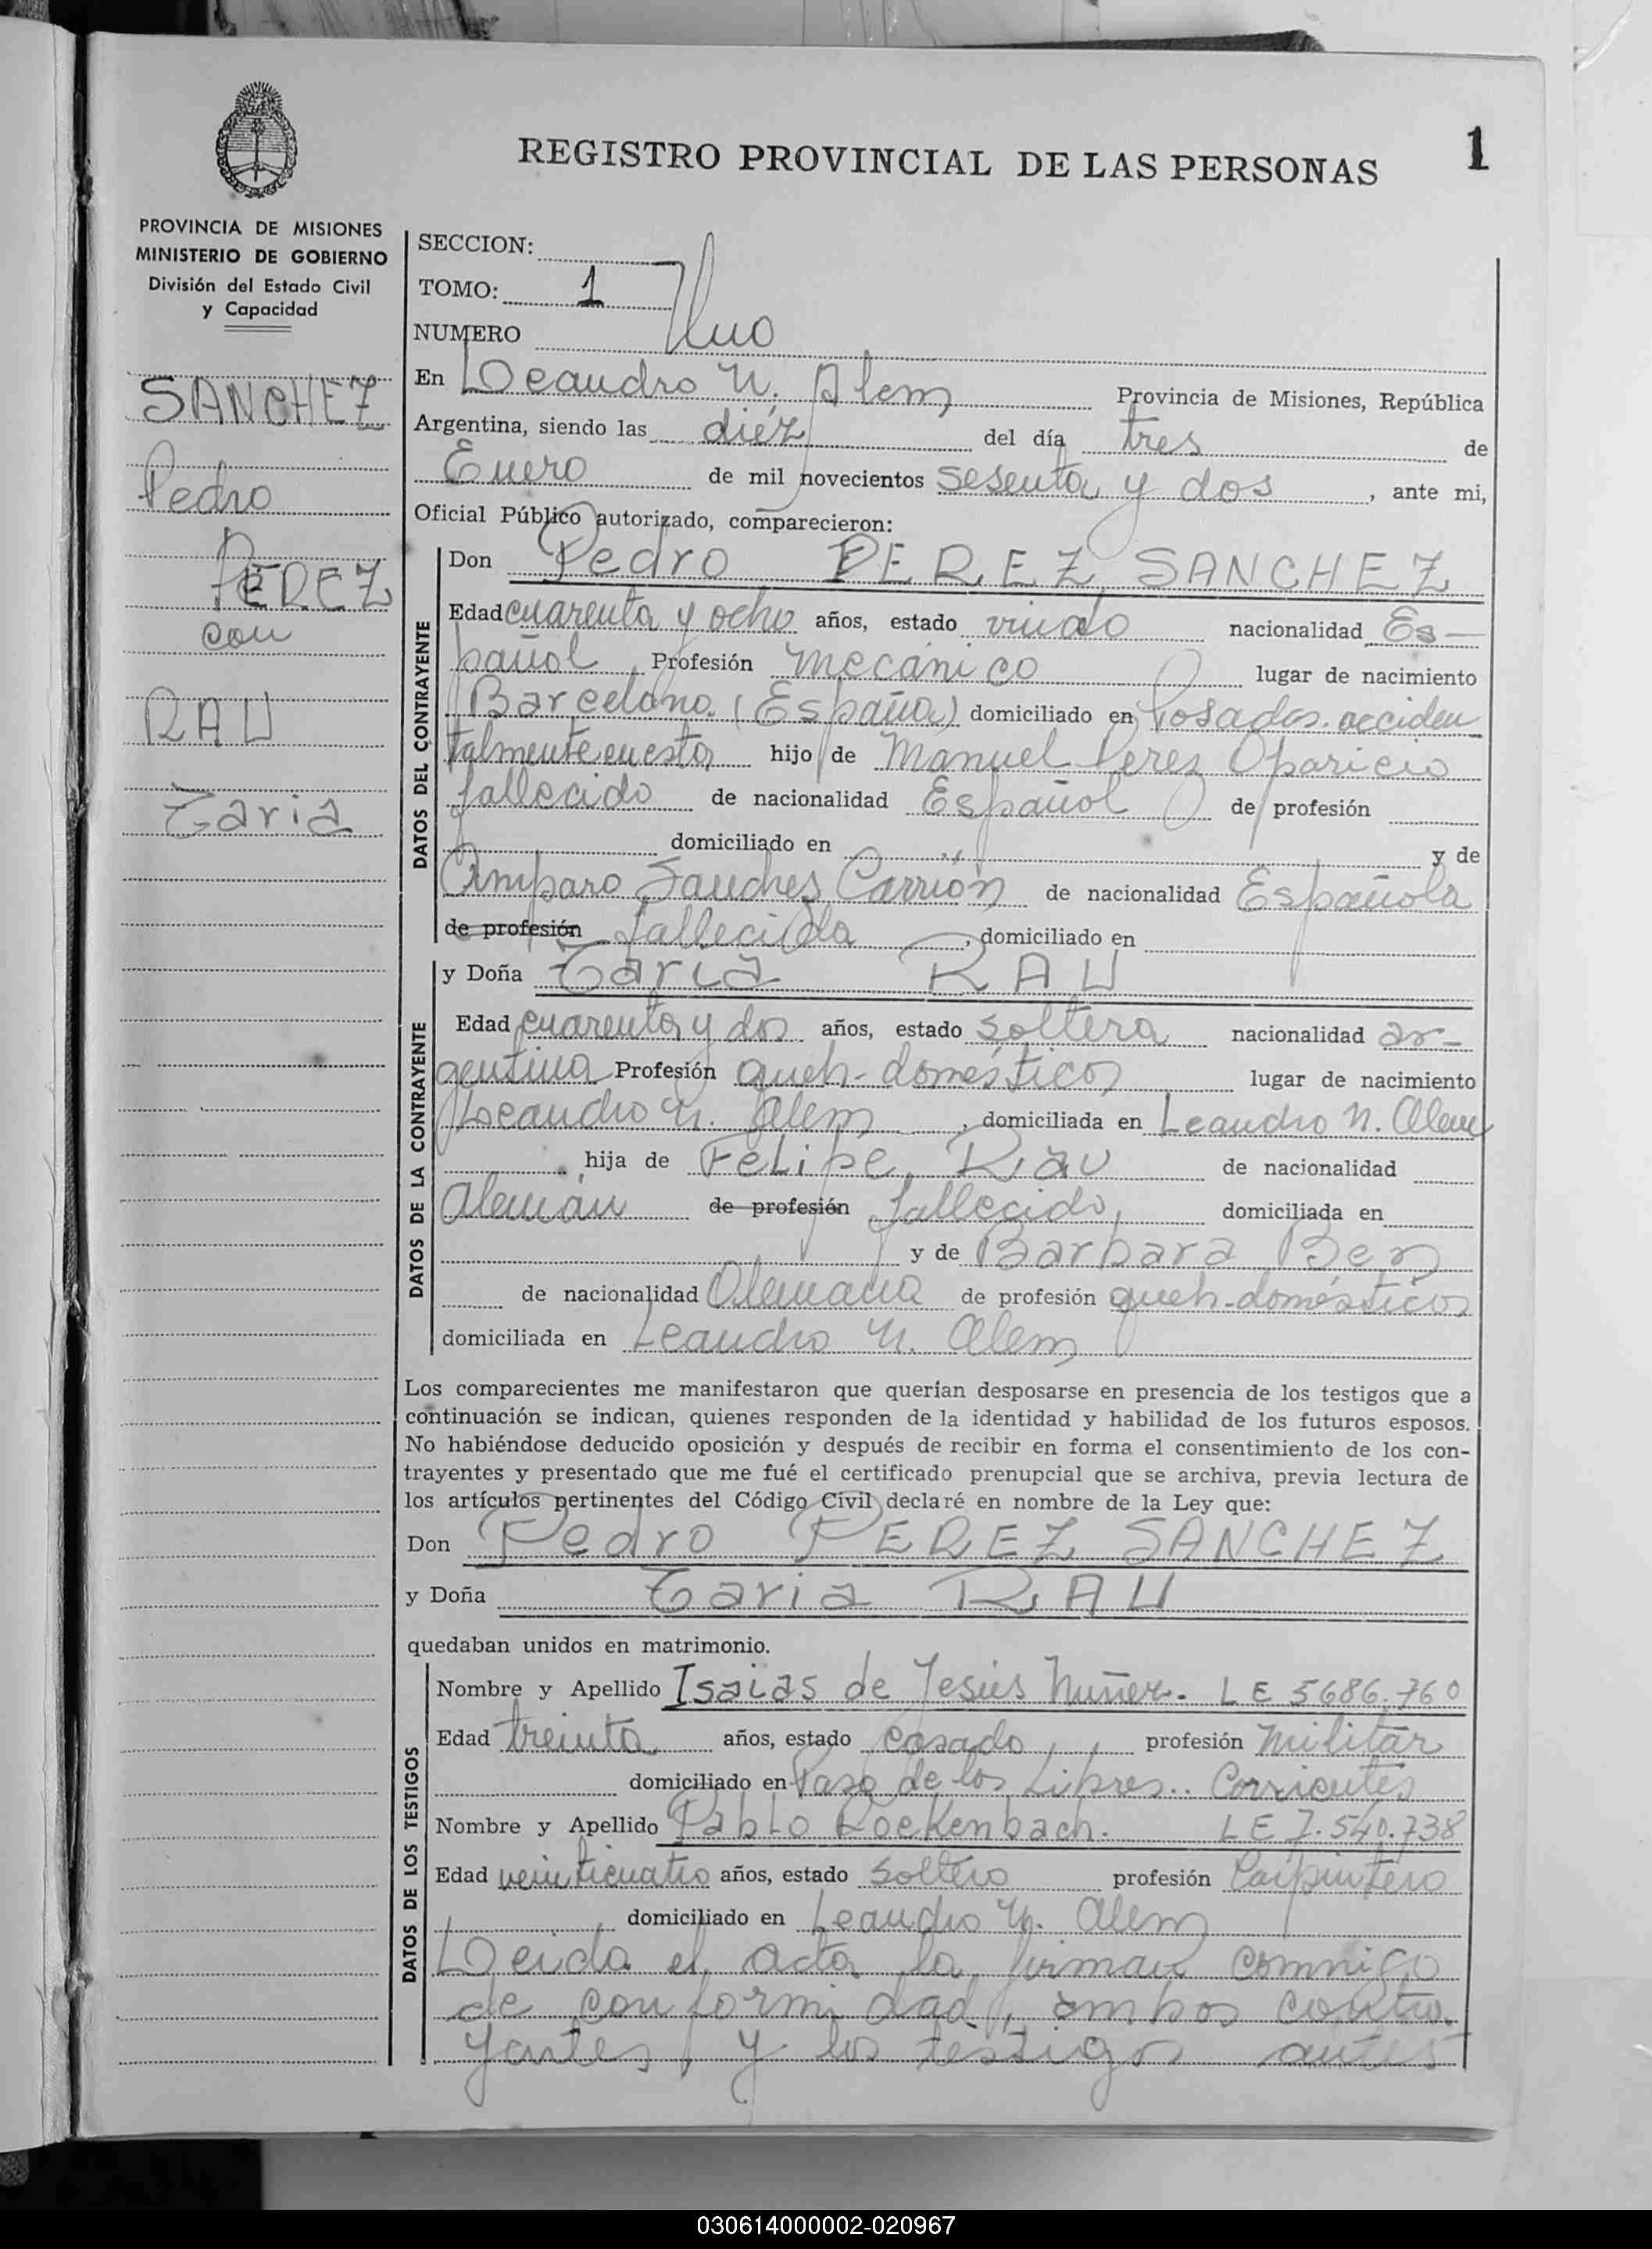 1
REGISTRO PROVINCIAL DE LAS PERSONAS
PROVINCIA DE MISIONES
MINISTERIO DE GOBIERNO
División del Estado Civil
y Capacidad
SANCHEZ
Pedro
PEREZ
con
RAU
Taria
SECCION:
TOMO: 1
NUMERO Uno
En Leandro N. Alem Provincia de Misiones, República
Argentina, siendo las diéz del día tres de
Enero de mil novecientos sesenta y dos, ante mi,
Oficial Público autorizado, comparecieron:
DATOS DEL CONTRAYENTE
Don Pedro PEREZ SANCHEZ
Edad cuarenta y ocho años, estado viudo nacionalidad Es-
pañol Profesión mecánico lugar de nacimiento
Barcelona (España) domiciliado en Posadas. acciden
talmente en esta hijo de Manuel Perez Oparicio
fallecido de nacionalidad Español de profesión
domiciliado en ,, y de
Amparo Sanches Carrión de nacionalidad Española
de profesión fallecida, domiciliado en
DATOS DE LA CONTRAYENTE
y Doña Taria RAU
Edad cuarenta y dos años, estado soltera nacionalidad ar-
gentina Profesión queh-domésticos lugar de nacimiento
Leandro N. Alem, domiciliada en Leandro N. Alem
hija de Felipe Rau de nacionalidad
Alemán de profesión fallecido, domiciliada en
y de Barbara Ben
de nacionalidad Alemana de profesión queh-domésticos
domiciliada en Leandro N. Alem
Los comparecientes me manifestaron que querían desposarse en presencia de los testigos que a
continuación se indican, quienes responden de la identidad y habilidad de los futuros esposos.
No habiéndose deducido oposición y después de recibir en forma el consentimiento de los con-
trayentes y presentado que me fué el certificado prenupcial que se archiva, previa lectura de
los artículos pertinentes del Código Civil declaré en nombre de la Ley que:
Don Pedro PEREZ SANCHEZ
y Doña Taria RAU
quedaban unidos en matrimonio.
DATOS DE LOS TESTIGOS
Nombre y Apellido Isaias de Jesús Nuñez. LE 5686.760
Edad treinta años, estado casado, profesión militar
domiciliado en Paso de los Libres.. Corrientes
Nombre y Apellido Pablo Rockenbach. LE 7.540.738
Edad veinticuatro años, estado soltero profesión Carpintero
domiciliado en Leandro N. Alem
Leida el acta la firman conmigo
de conformidad, ambos contra.
yentes y los testigos antes
030614000002-020967